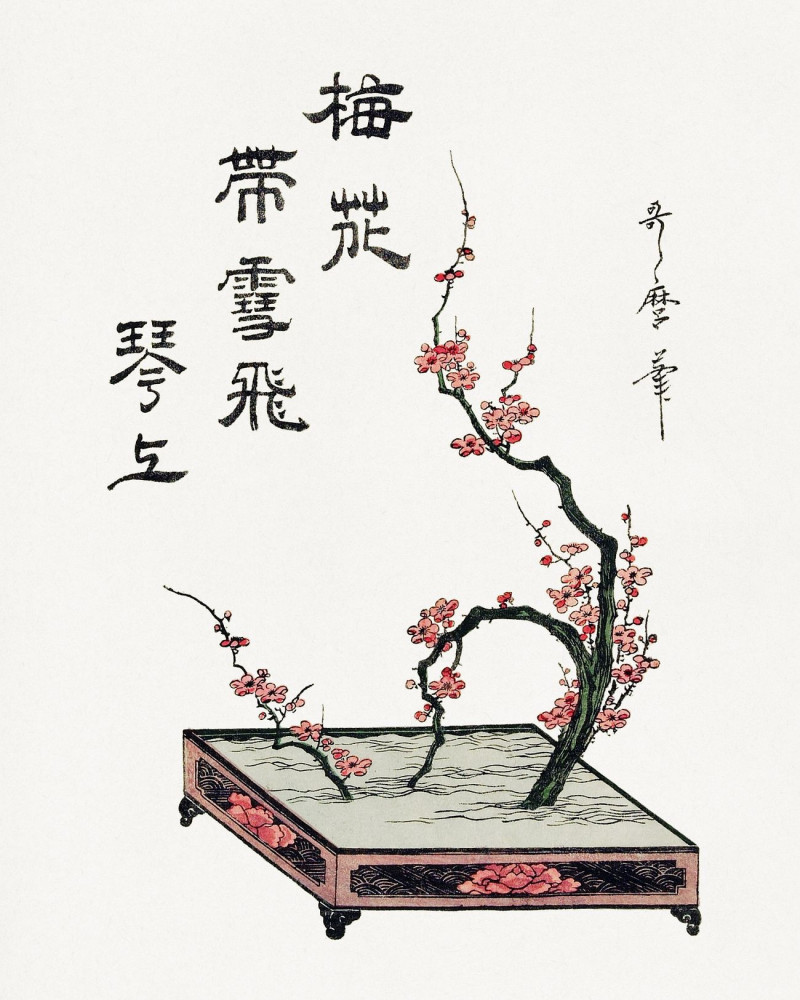 梅花
帯雪飛
琴上
哥麿筆